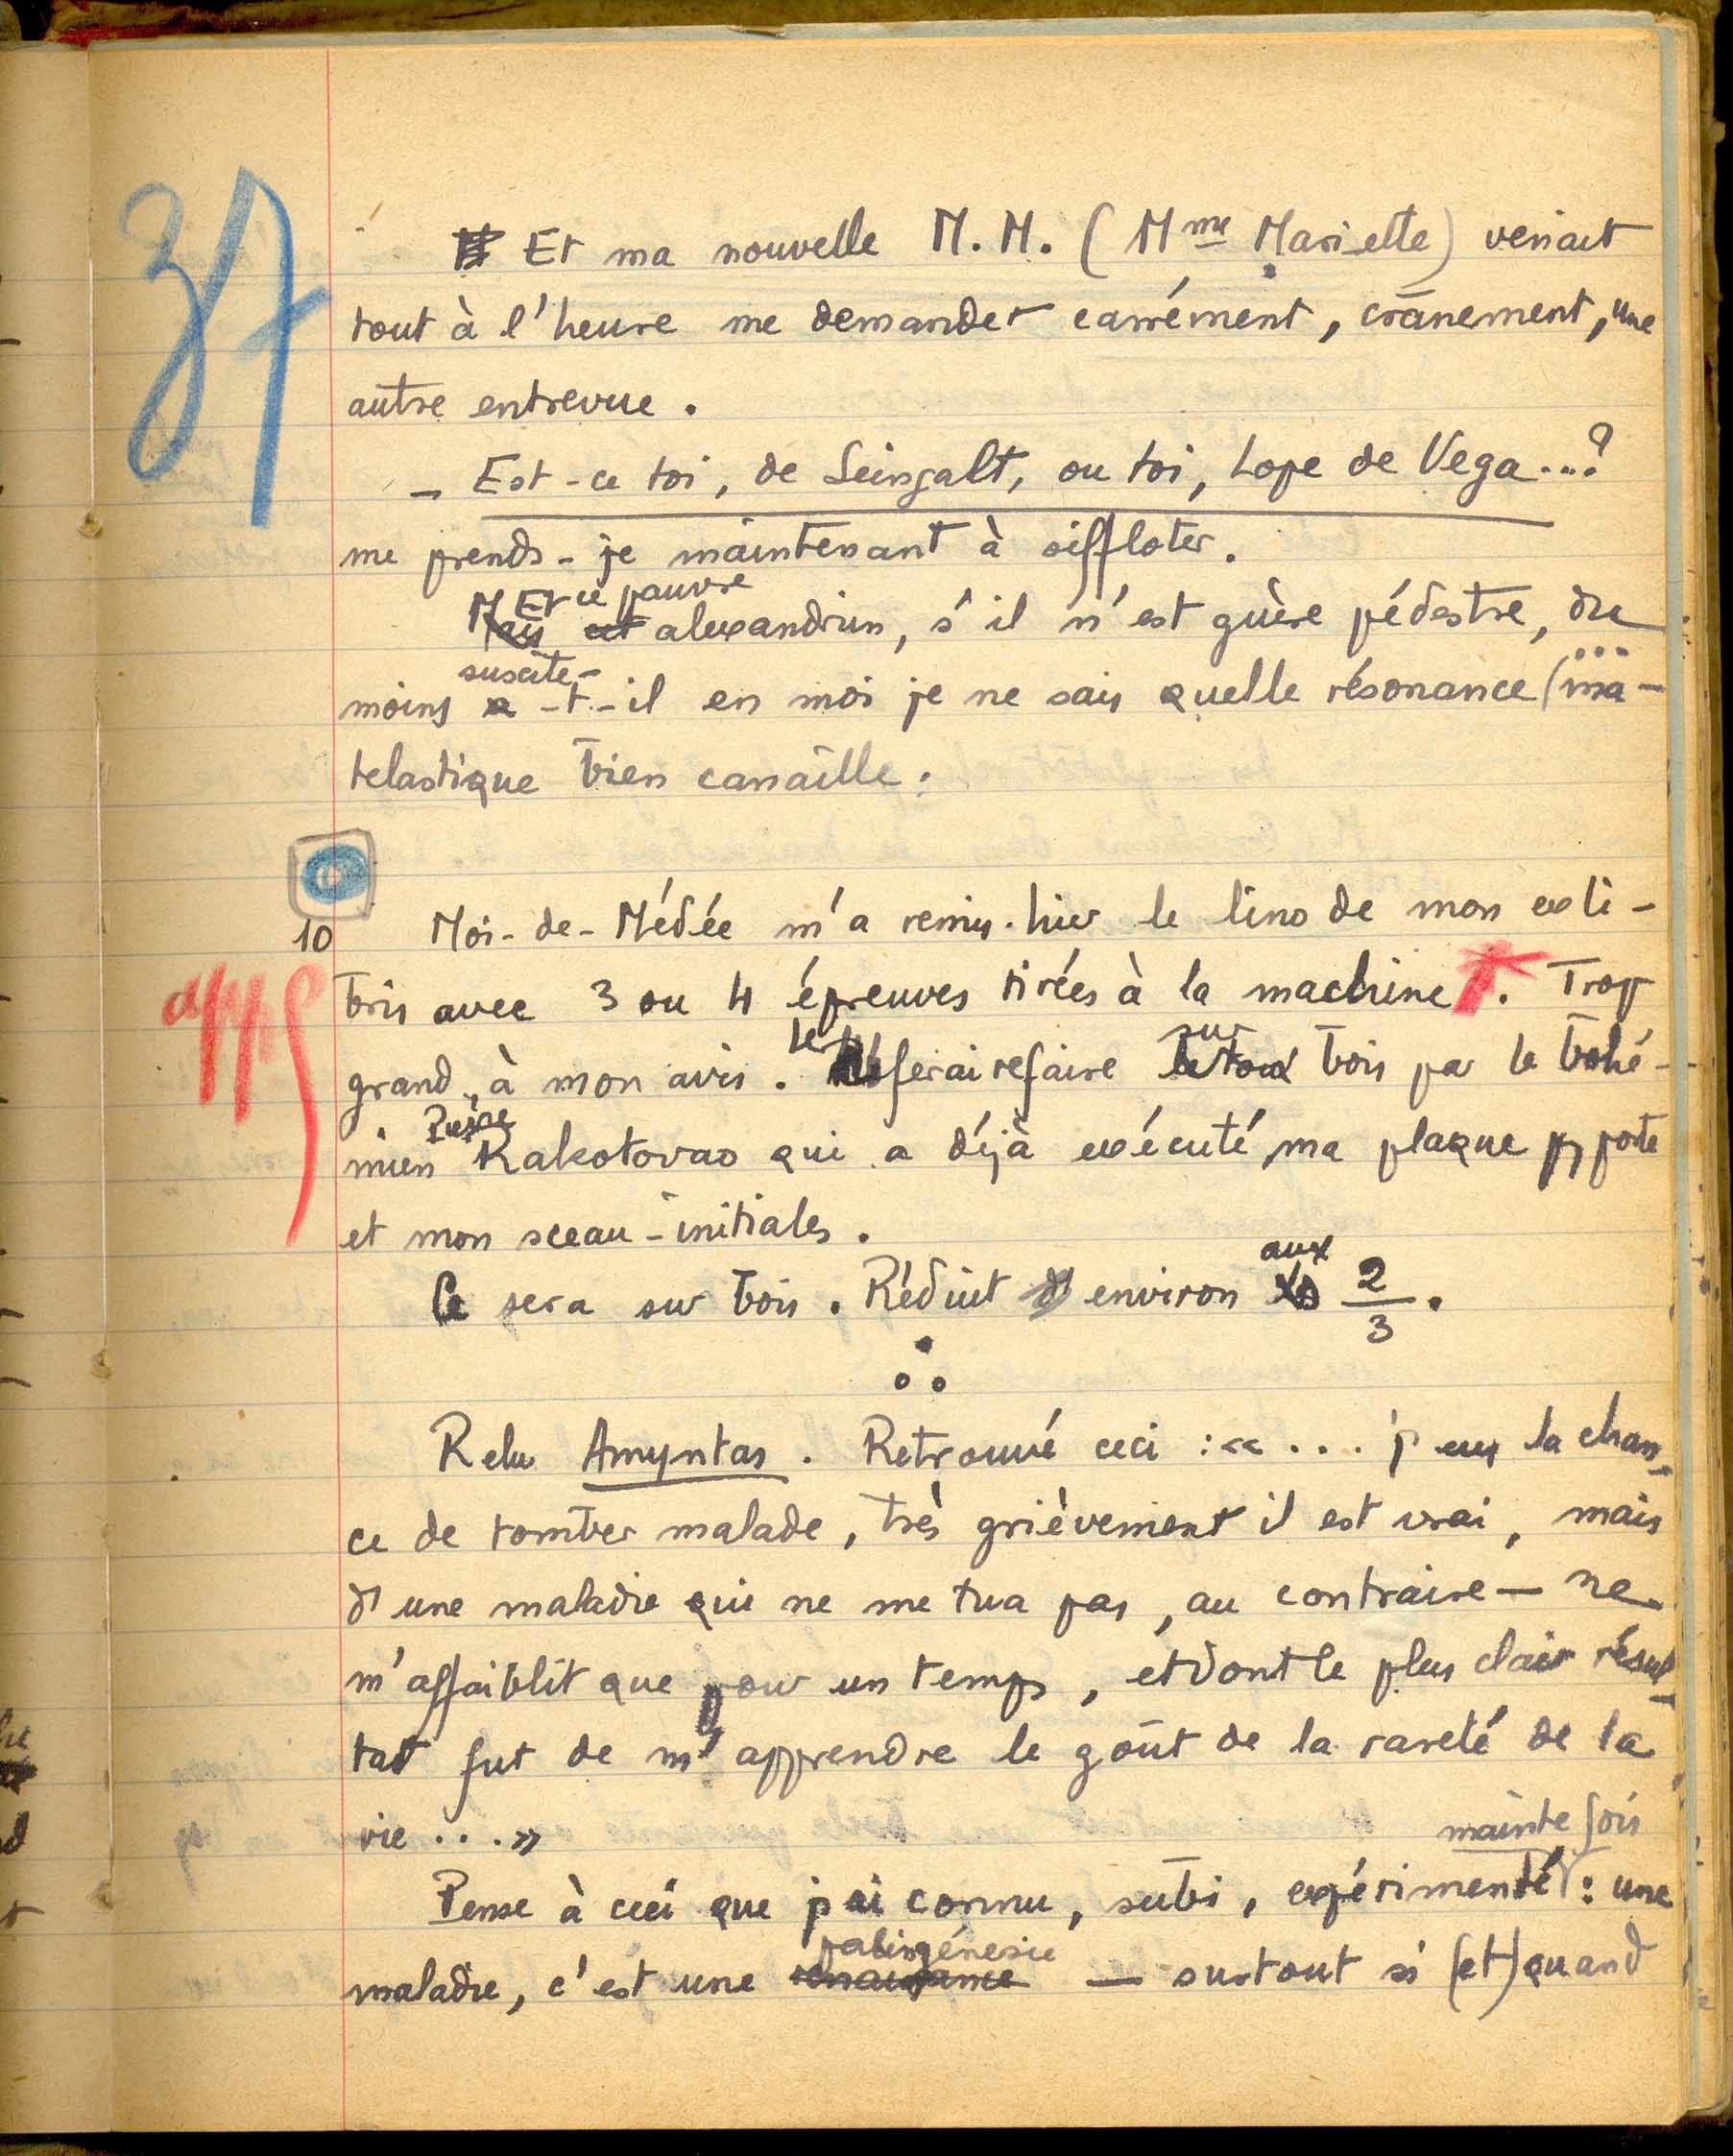 37
Et ma nouvelle M. M. (Mme Mariette) venait
tout à l'heure me demander carrément, crânement, une
autre entrevue.
– Est-ce toi, de Seingalt, ou toi, Lope de Vega...?
me prends-je maintenant à siffloter.
Et ce pauvre
Mais cet alexandrin, s'il n'est guère pédestre, du
suscite-
moins a-t-il en moi je ne sais quelle résonance (ma-
...
telastique bien canaille.
10
Moi-de-Médée m'a remis hier le lino de mon exli-
bris avec 3 ou 4 épreuves tirées à la machine. Trop
grand, à mon avis. Le ferai refaire sur bois par le bohé-
Pierre
mien Rakotovao qui a déjà exécuté ma plaque pr porte
et mon sceau-initiales.
aux
Ce sera sur bois. Réduit d' environ les 2/3.
Relu Amyntas. Retrouvé ceci : «... j'eus la chan-
ce de tomber malade, très grièvement il est vrai, mais
d'une maladie qui ne me tua pas, au contraire – ne
m'affaiblit que pour un temps, et dont le plus clair résul-
tat fut de m'apprendre le goût de la rareté de la
vie...»
mainte fois
Pense à ceci que j'ai connu, subi, expérimenté : une
palingénésie
maladie, c'est une renaissance — surtout si (et) quand